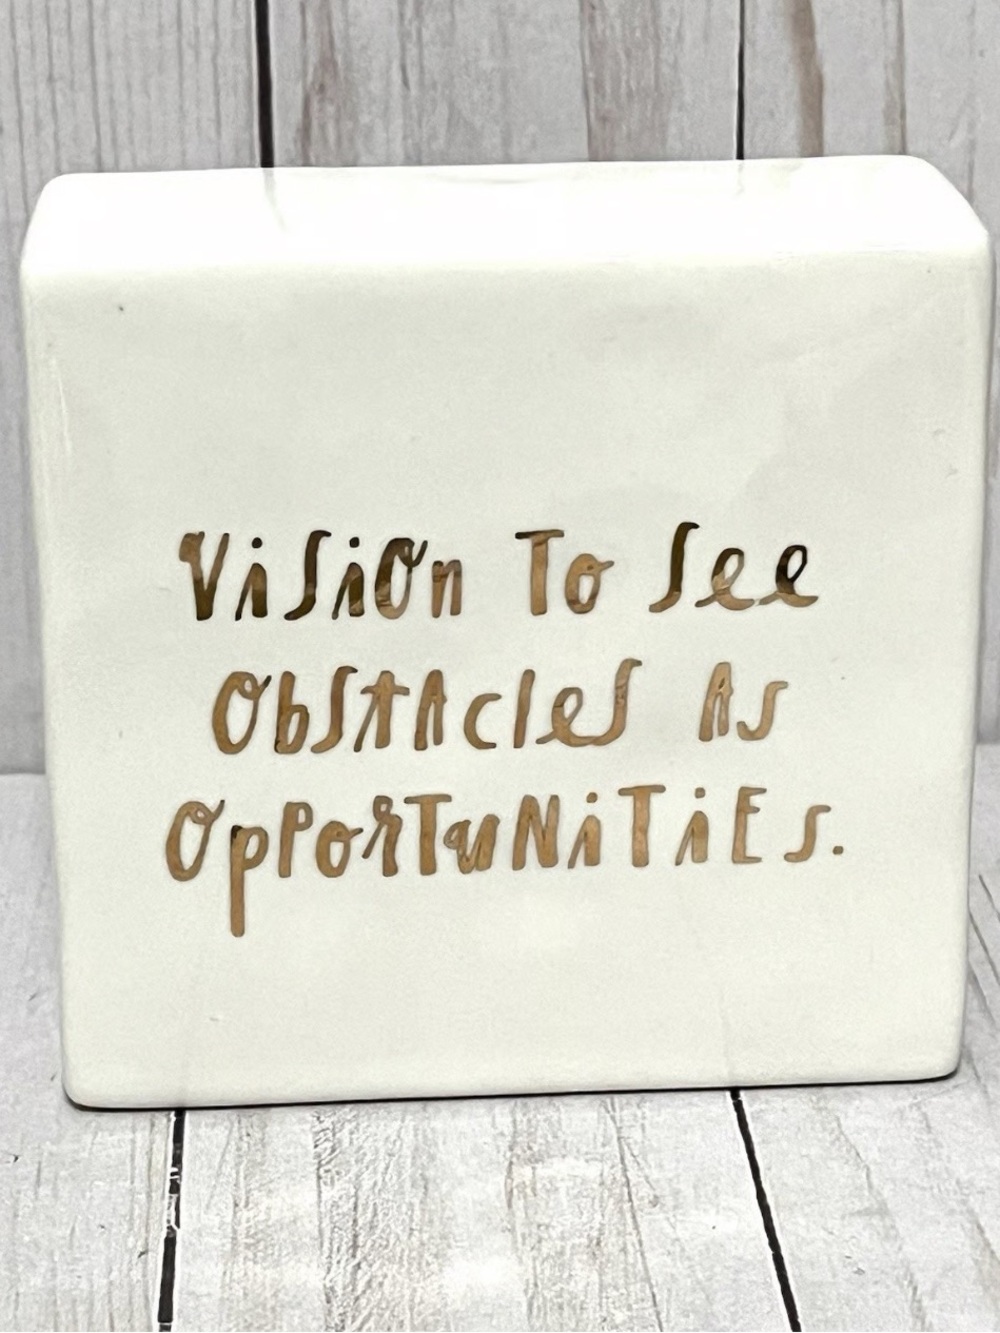 Vision To See
Obstacles As
Opportunities.